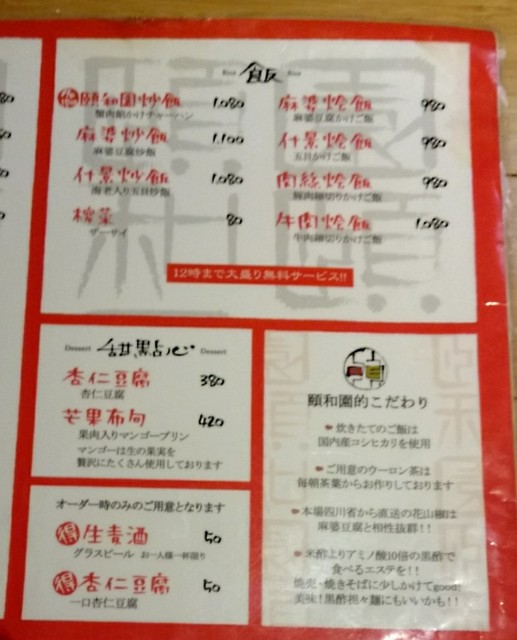 Rice 飯 Rice
頤和園炒飯 1,080
蟹肉餡かけチャーハン
麻婆炒飯 1,100
麻婆豆腐炒飯
什景炒飯 1,080
海老入り五目炒飯
榨菜 80
ザーサイ
麻婆烩飯 980
麻婆豆腐かけご飯
什景烩飯 980
五目かけご飯
肉絲烩飯 980
豚肉細切りかけご飯
牛肉烩飯 1,080
牛肉細切りかけご飯
12時まで大盛り無料サービス!!
Dessert 甜點心 Dessert
杏仁豆腐 380
杏仁豆腐
芒果布甸 420
果肉入りマンゴープリン
マンゴーは生の果実を
贅沢にたくさん使用しております
オーダー時のみのご用意となります
得 生麦酒 50
グラスビール お一人様一杯限り
得 杏仁豆腐 50
一口杏仁豆腐
頤和園的こだわり
炊きたてのご飯は
国内産コシヒカリを使用
ご用意のウーロン茶は
毎朝茶葉からお作りしております
本場四川省から直送の花山椒は
麻婆豆腐と相性抜群!!
米酢よりアミノ酸10倍の黒酢で
食べるエステを!!
焼売・焼きそばに少しかけてgood!
美味!黒酢担々麺にもいいかも!!